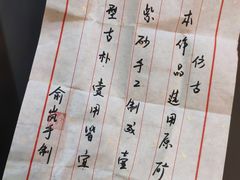 仿古
本作品选用原矿
紫砂手工制成壶
型古朴赏用皆宜
俞岚手制